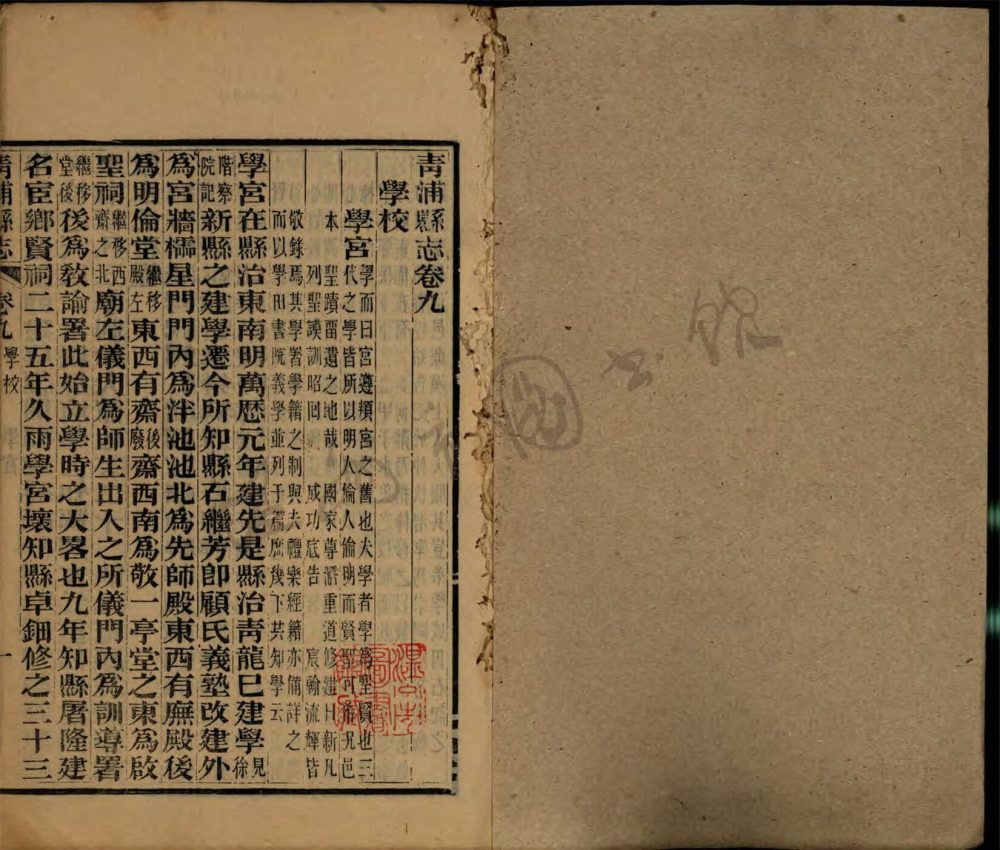 青浦縣志卷九
學校
學宮
學而曰宮遵頖宮之舊也夫學者學爲聖賢也三
代之學皆所以明人倫人倫明而賢聖可希况邑
本 聖蹟畱遺之地哉 國家尊儒重道修建日新凡
列聖謨訓昭回 成功底告 宸翰流輝皆
敬錄焉其學署學籍之制與夫禮樂經籍亦備詳之
而以學田書院義學並列于篇庶幾下共知學云
學宮在縣治東南明萬歷元年建先是縣治青龍巳建學見徐
階察院記新縣之建學遷今所知縣石繼芳卽顧氏義塾改建外
爲宮牆櫺星門門內爲泮池池北爲先師殿東西有廡殿後
爲明倫堂繼移殿左東西有齋後廢齋西南爲敬一亭堂之東爲啟
聖祠繼移西齋之北廟左儀門爲師生出入之所儀門內爲訓導署
繼移堂後後爲敎諭署此始立學時之大畧也九年知縣屠隆建
名宦鄉賢祠二十五年久雨學宮壞知縣卓鈿修之三十三
青浦縣志 卷九 學校 一